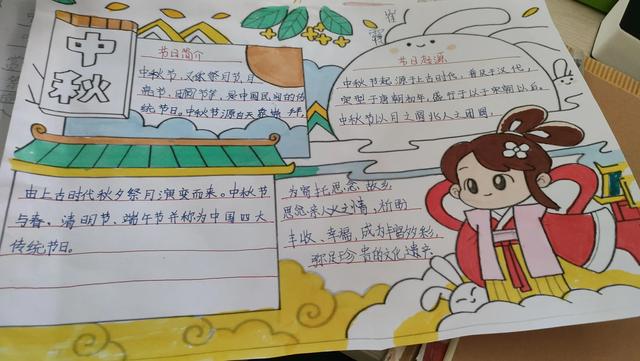 中秋
节日简介
中秋节,又称祭月节,月
节、团圆节等,是中国民间的传
统节日。中秋节源自天象崇拜,
由上古时代秋夕祭月演变而来。中秋节
与春、清明节、端午节并称为中国四大
传统节日。
节日起源
中秋节起源于上古时代,普及于汉代,
定型于唐朝初年,盛行于宋朝以后。
中秋节以月之圆兆人之团圆,
为寄托思念故乡
思念亲人之情,祈盼
丰收、幸福,成为丰富多彩,
弥足珍贵的文化遗产。